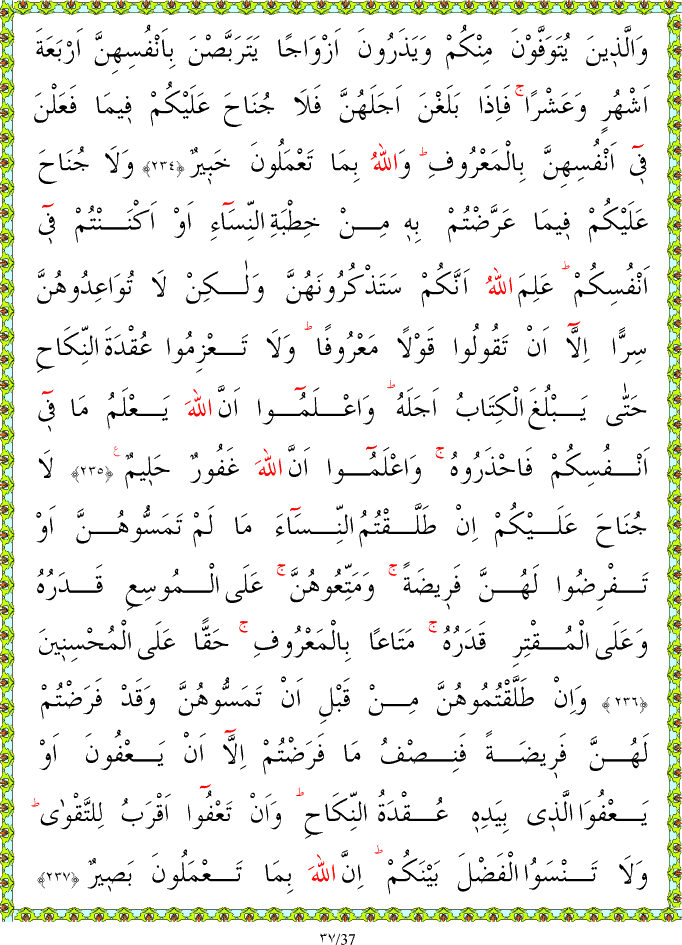 وَالَّذ۪ينَ يُتَوَفَّوْنَ مِنْكُمْ وَيَذَرُونَ اَزْوَاجًا يَتَرَبَّصْنَ بِاَنْفُسِهِنَّ اَرْبَعَةَ
اَشْهُرٍ وَعَشْرًاۚ فَاِذَا بَلَغْنَ اَجَلَهُنَّ فَلَا جُنَاحَ عَلَيْكُمْ ف۪يمَا فَعَلْنَ
ف۪ٓي اَنْفُسِهِنَّ بِالْمَعْرُوفِۜ وَاللّٰهُ بِمَا تَعْمَلُونَ خَب۪يرٌ ﴿٢٣٤﴾ وَلَا جُنَاحَ
عَلَيْكُمْ ف۪يمَا عَرَّضْتُمْ بِه۪ مِـنْ خِطْبَةِ النِّسَٓاءِ اَوْ اَكْنَـنْتُمْ ف۪ٓي
اَنْفُسِكُمْۜ عَلِمَ اللّٰهُ اَنَّكُمْ سَتَذْكُرُونَهُنَّ وَلٰـكِنْ لَا تُوَاعِدُوهُنَّ
سِرًّا اِلَّٓا اَنْ تَقُولُوا قَوْلًا مَعْرُوفًاۜ وَلَا تَـعْزِمُوا عُقْدَةَ النِّكَاحِ
حَتّٰى يَـبْلُغَ الْكِتَابُ اَجَلَهُۜ وَاعْـلَمُٓـوا اَنَّ اللّٰهَ يَـعْلَمُ مَا ف۪ٓي
اَنْـفُسِكُمْ فَاحْذَرُوهُۚ وَاعْلَمُٓـوا اَنَّ اللّٰهَ غَفُورٌ حَل۪يمٌ۟ ﴿٢٣٥﴾ لَا
جُنَاحَ عَلَـيْكُمْ اِنْ طَلَّـقْتُمُ النِّـسَٓاءَ مَا لَمْ تَمَسُّوهُـنَّ اَوْ
تَـفْرِضُوا لَهُـنَّ فَر۪يضَةًۚ وَمَتِّعُوهُنَّۚ عَلَى الْـمُوسِعِ قَـدَرُهُ
وَعَلَى الْمُـقْتِرِ قَدَرُهُۚ مَتَاعًا بِالْمَعْرُوفِۚ حَقًّا عَلَى الْمُحْسِن۪ينَ
﴿٢٣٦﴾ وَاِنْ طَلَّقْتُمُوهُنَّ مِـنْ قَبْلِ اَنْ تَمَسُّوهُنَّ وَقَدْ فَرَضْتُمْ
لَهُـنَّ فَر۪يضَـةً فَنِـصْفُ مَا فَرَضْتُمْ اِلَّٓا اَنْ يَـعْفُونَ اَوْ
يَـعْفُوَا الَّذ۪ي بِيَدِه۪ عُـقْدَةُ النِّكَاحِۜ وَاَنْ تَعْفُٓوا اَقْرَبُ لِلتَّقْوٰىۜ
وَلَا تَـنْسَوُا الْفَضْلَ بَيْنَكُمْۜ اِنَّ اللّٰهَ بِمَا تَـعْمَلُونَ بَص۪يرٌ ﴿٢٣٧﴾
٣٧/37